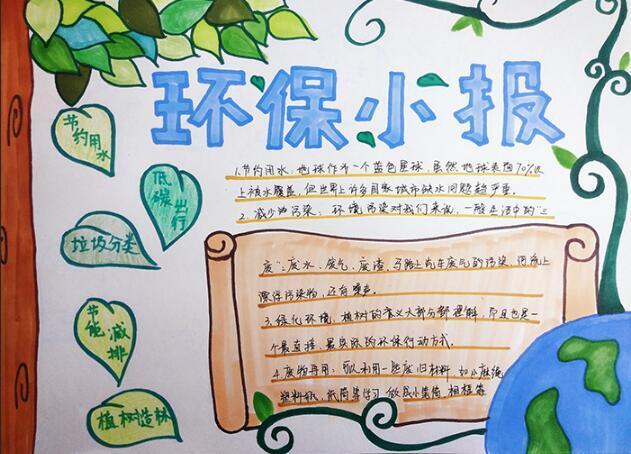 环保小报
节约用水
低碳出行
垃圾分类
节能减排
植树造林
1.节约用水：地球作为一个蓝色星球，虽然地球表面70%以
上被水覆盖，但世界上许多国家城市缺水问题趋严重。
2.减少污染：环境污染对我们来说，一般生活中的“三
废”：废水、废气、废渣，马路上汽车废气的污染，河流上
漂浮污染物，还有噪声。
3.绿化环境：植树的意义大部分都理解，而且也是一
个最直接、最实际的环保行动方式。
4.废物再用：可以利用一些废旧材料，如小麻绳
塑料瓶，纸筒等学习做成小笔筒，相框等